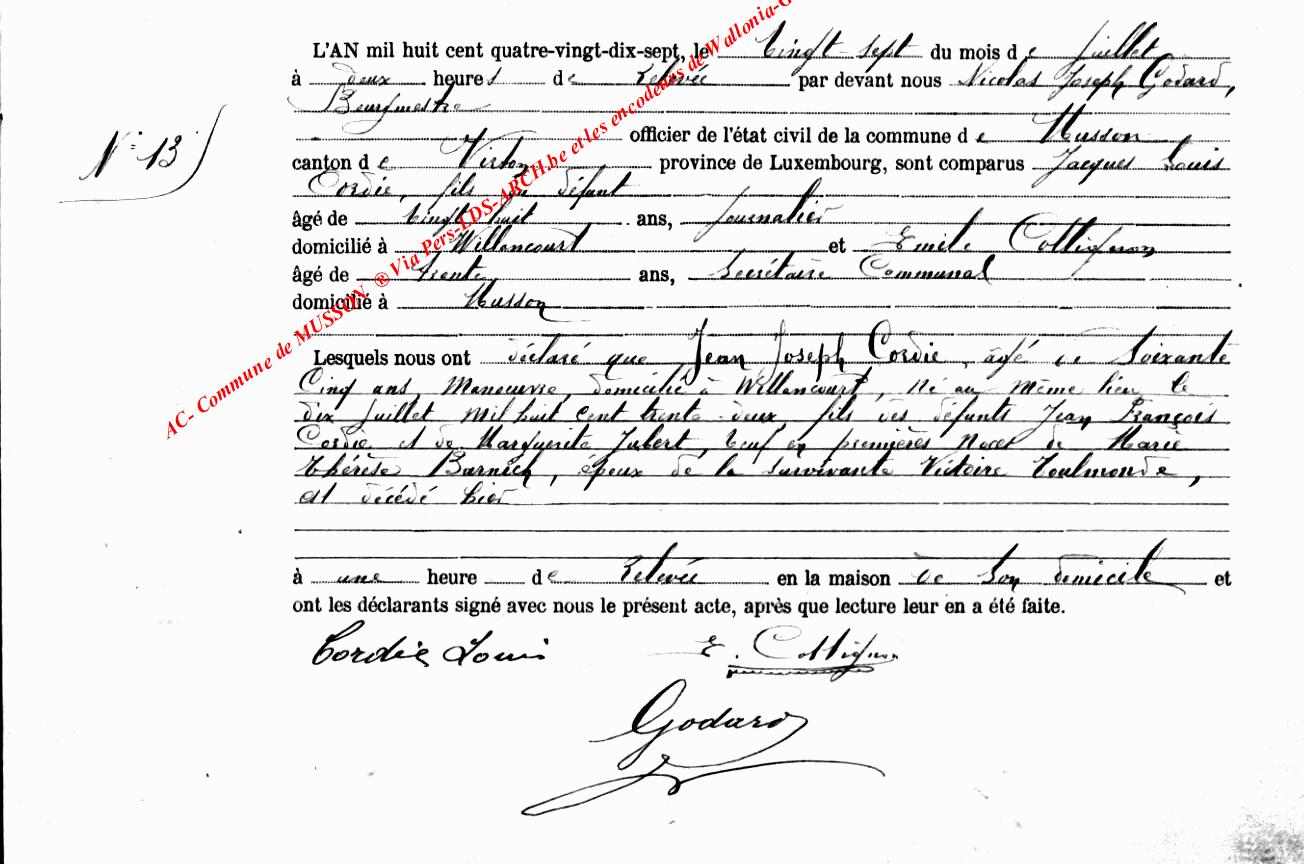 L'AN mil huit cent quatre-vingt-dix-sept, le Vingt-sept du mois de juillet
à deux heures de Relevée par devant nous Nicolas Joseph Godard,
Bourgmestre
officier de l'état civil de la commune de Musson
N° 13
canton de Virton province de Luxembourg, sont comparus Jacques Louis
Cordie, fils du défunt
âgé de Vingt huit ans, journalier
domicilié à Willancourt et Emile Collignon
âgé de trente ans, Secrétaire Communal
domicilié à Musson
Lesquels nous ont déclaré que Jean Joseph Cordie, âgé de Soixante
Cinq ans, Manoeuvre, domicilié à Willancourt, Né au même lieu le
dix juillet mil huit cent trente-deux fils des défunts Jean François
Cordie et de Marguerite Jubert, Veuf en premières Noces de Marie
Thérèse Barnich, époux de la survivante Victoire Toulmonde,
est décédé hier
à une heure de Relevée en la maison de Son domicile et
ont les déclarants signé avec nous le présent acte, après que lecture leur en a été faite.
Cordie Louis E. Collignon
Godard
AC- Commune de MUSSON ® Via Pers-LDS-ARCH.be et les encodeurs de Wallonia-G